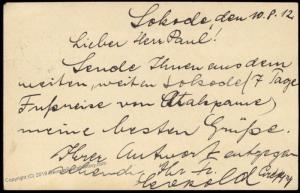 Sokode, den 10.8.12
Lieber Herr Paul!
Sende Ihnen aus dem
weiten, weiten Sokode (7 Tage
Fußreise von Atakpame)
meine besten Grüße.
Ihrer Antwort entgegen
sehend, Ihr